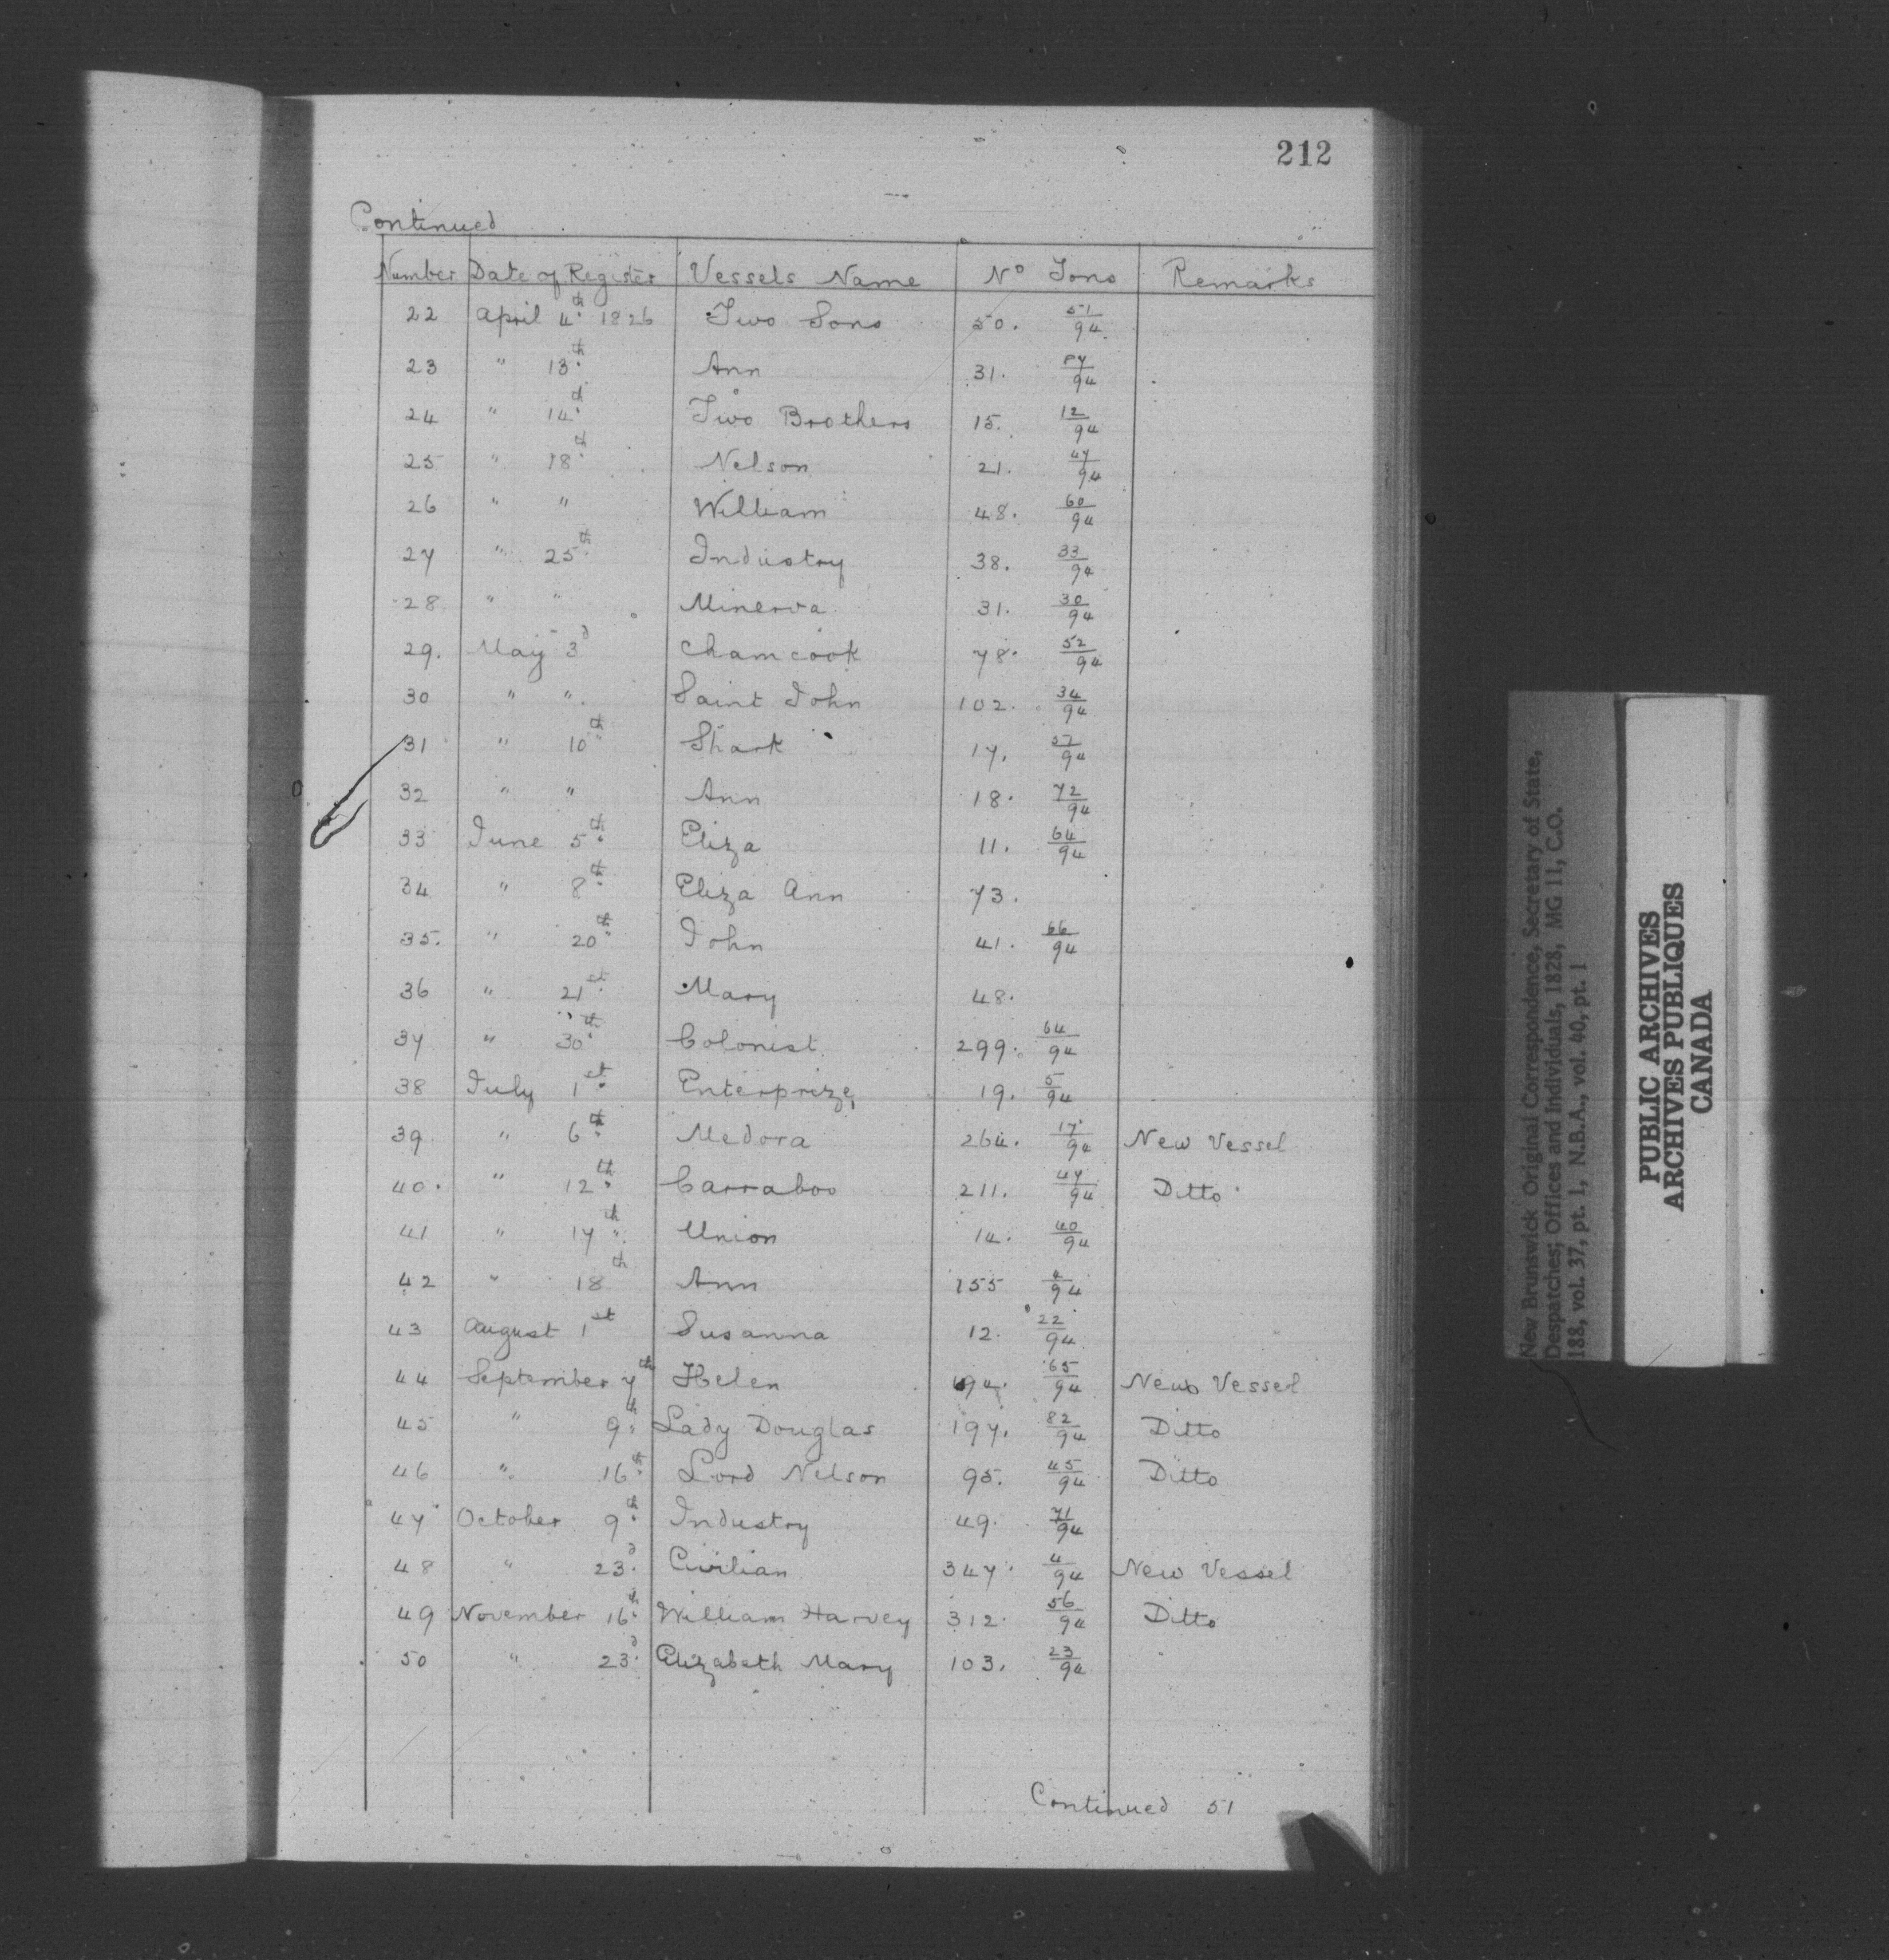 212
Continued
Number Date of Register Vessels Name No Tons Remarks
22 April 4th 1826 Two Sons 50. 51/94
23 " 13th Ann 31. 87/94
24 " 14th Two Brothers 15. 12/94
25 " 18th Nelson 21. 47/94
26 " " William 48. 60/94
27 " 25th Industry 38. 33/94
28 " " Minerva 31. 30/94
29. May 3d Chamcook 78. 52/94
30 " " Saint John 102. 34/94
31 " 10th Shark 17. 57/94
32 " " Ann 18. 72/94
33 June 5th Eliza 11. 64/94
34 " 8th Eliza Ann 73.
35. " 20th John 41. 66/94
36 " 21st Mary 48.
37 " 30th Colonist 299. 64/94
38 July 1st Enterprize 19. 5/94
39 " 6th Medora 264. 17/94 New Vessel
40. " 12th Carraboo 211. 47/94 Ditto
41 " 17th Union 14. 40/94
42 " 18th Ann 155 4/94
43 August 1st Susanna 12. 22/94
44 September 7th Helen 65/94 New Vessel
45 " 9th Lady Douglas 197. 82/94 Ditto
46 " 16th Lord Nelson 95. 45/94 Ditto
47 October 9th Industry 49. 71/94
48 " 23d Civilian 347. 4/94 New Vessel
49 November 16th William Harvey 312. 56/94 Ditto
50 " 23d Elizabeth Mary 103. 23/94
Continued 51
New Brunswick Original Correspondence, Secretary of State,
Despatches; Offices and Individuals, 1828, MG 11, C.O.
188, vol. 37, pt. 1, N.B.A., vol. 40, pt. 1
PUBLIC ARCHIVES
ARCHIVES PUBLIQUES
CANADA